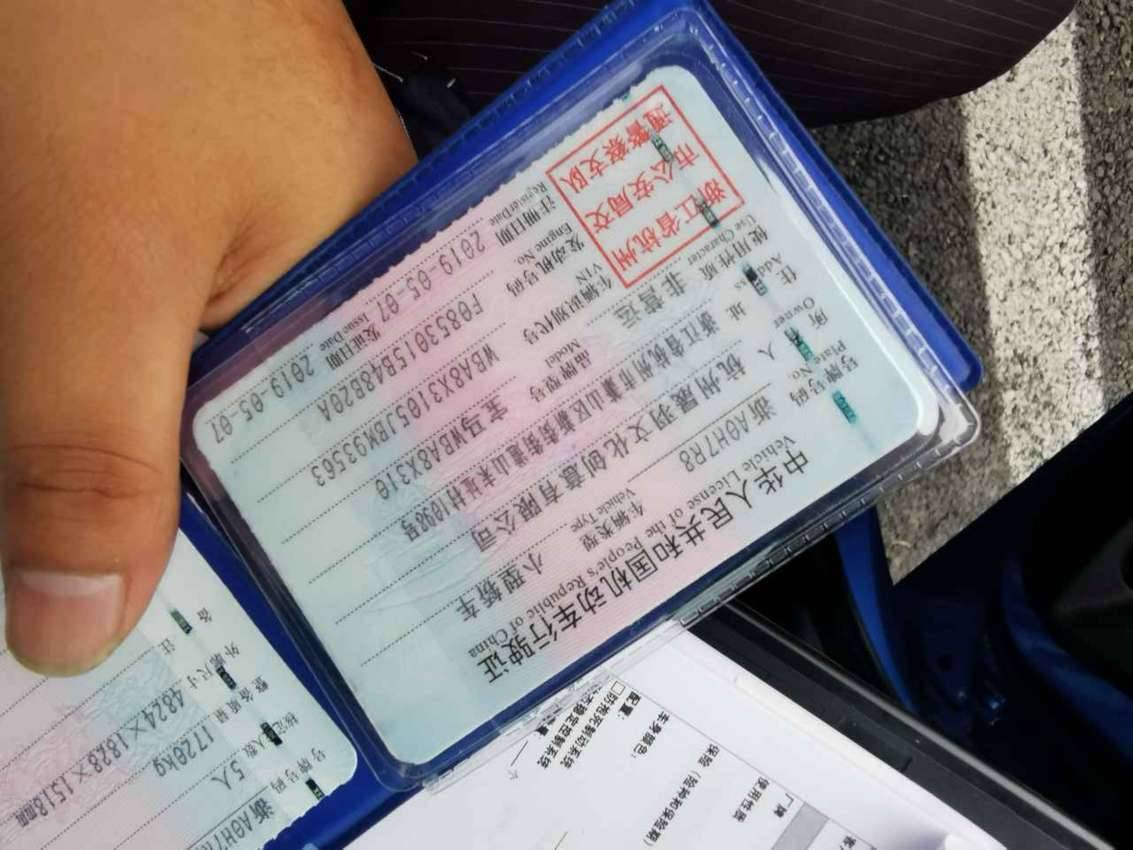 中华人民共和国机动车行驶证
Vehicle License of the People's Republic of China
号牌号码 浙A0H7R8 车辆类型 小型轿车
Plate No. Vehicle Type
所有人 杭州展羽文化创意有限公司
Owner
住址 浙江省杭州市萧山区新街街道山末址村1098号
Address
使用性质 非营运 品牌型号 宝马WBA8X310
Use Character Model
浙江省杭州
市公安局交
通警察支队
车辆识别代号 WBA8X3105JBM93563
VIN
发动机号码 F0853015B48B20A
Engine No.
注册日期 2019-05-07 发证日期 2019-05-07
Register Date Issue Date
号牌号码 浙A0H7R
核定载人数 5人
整备质量 1720kg
外廓尺寸 4824×1828×1518mm
备注
厂牌
使用性质
保险(险种和保险期)
车身颜色:
配置:
□防抱死制动系统
稳定控制系统
个